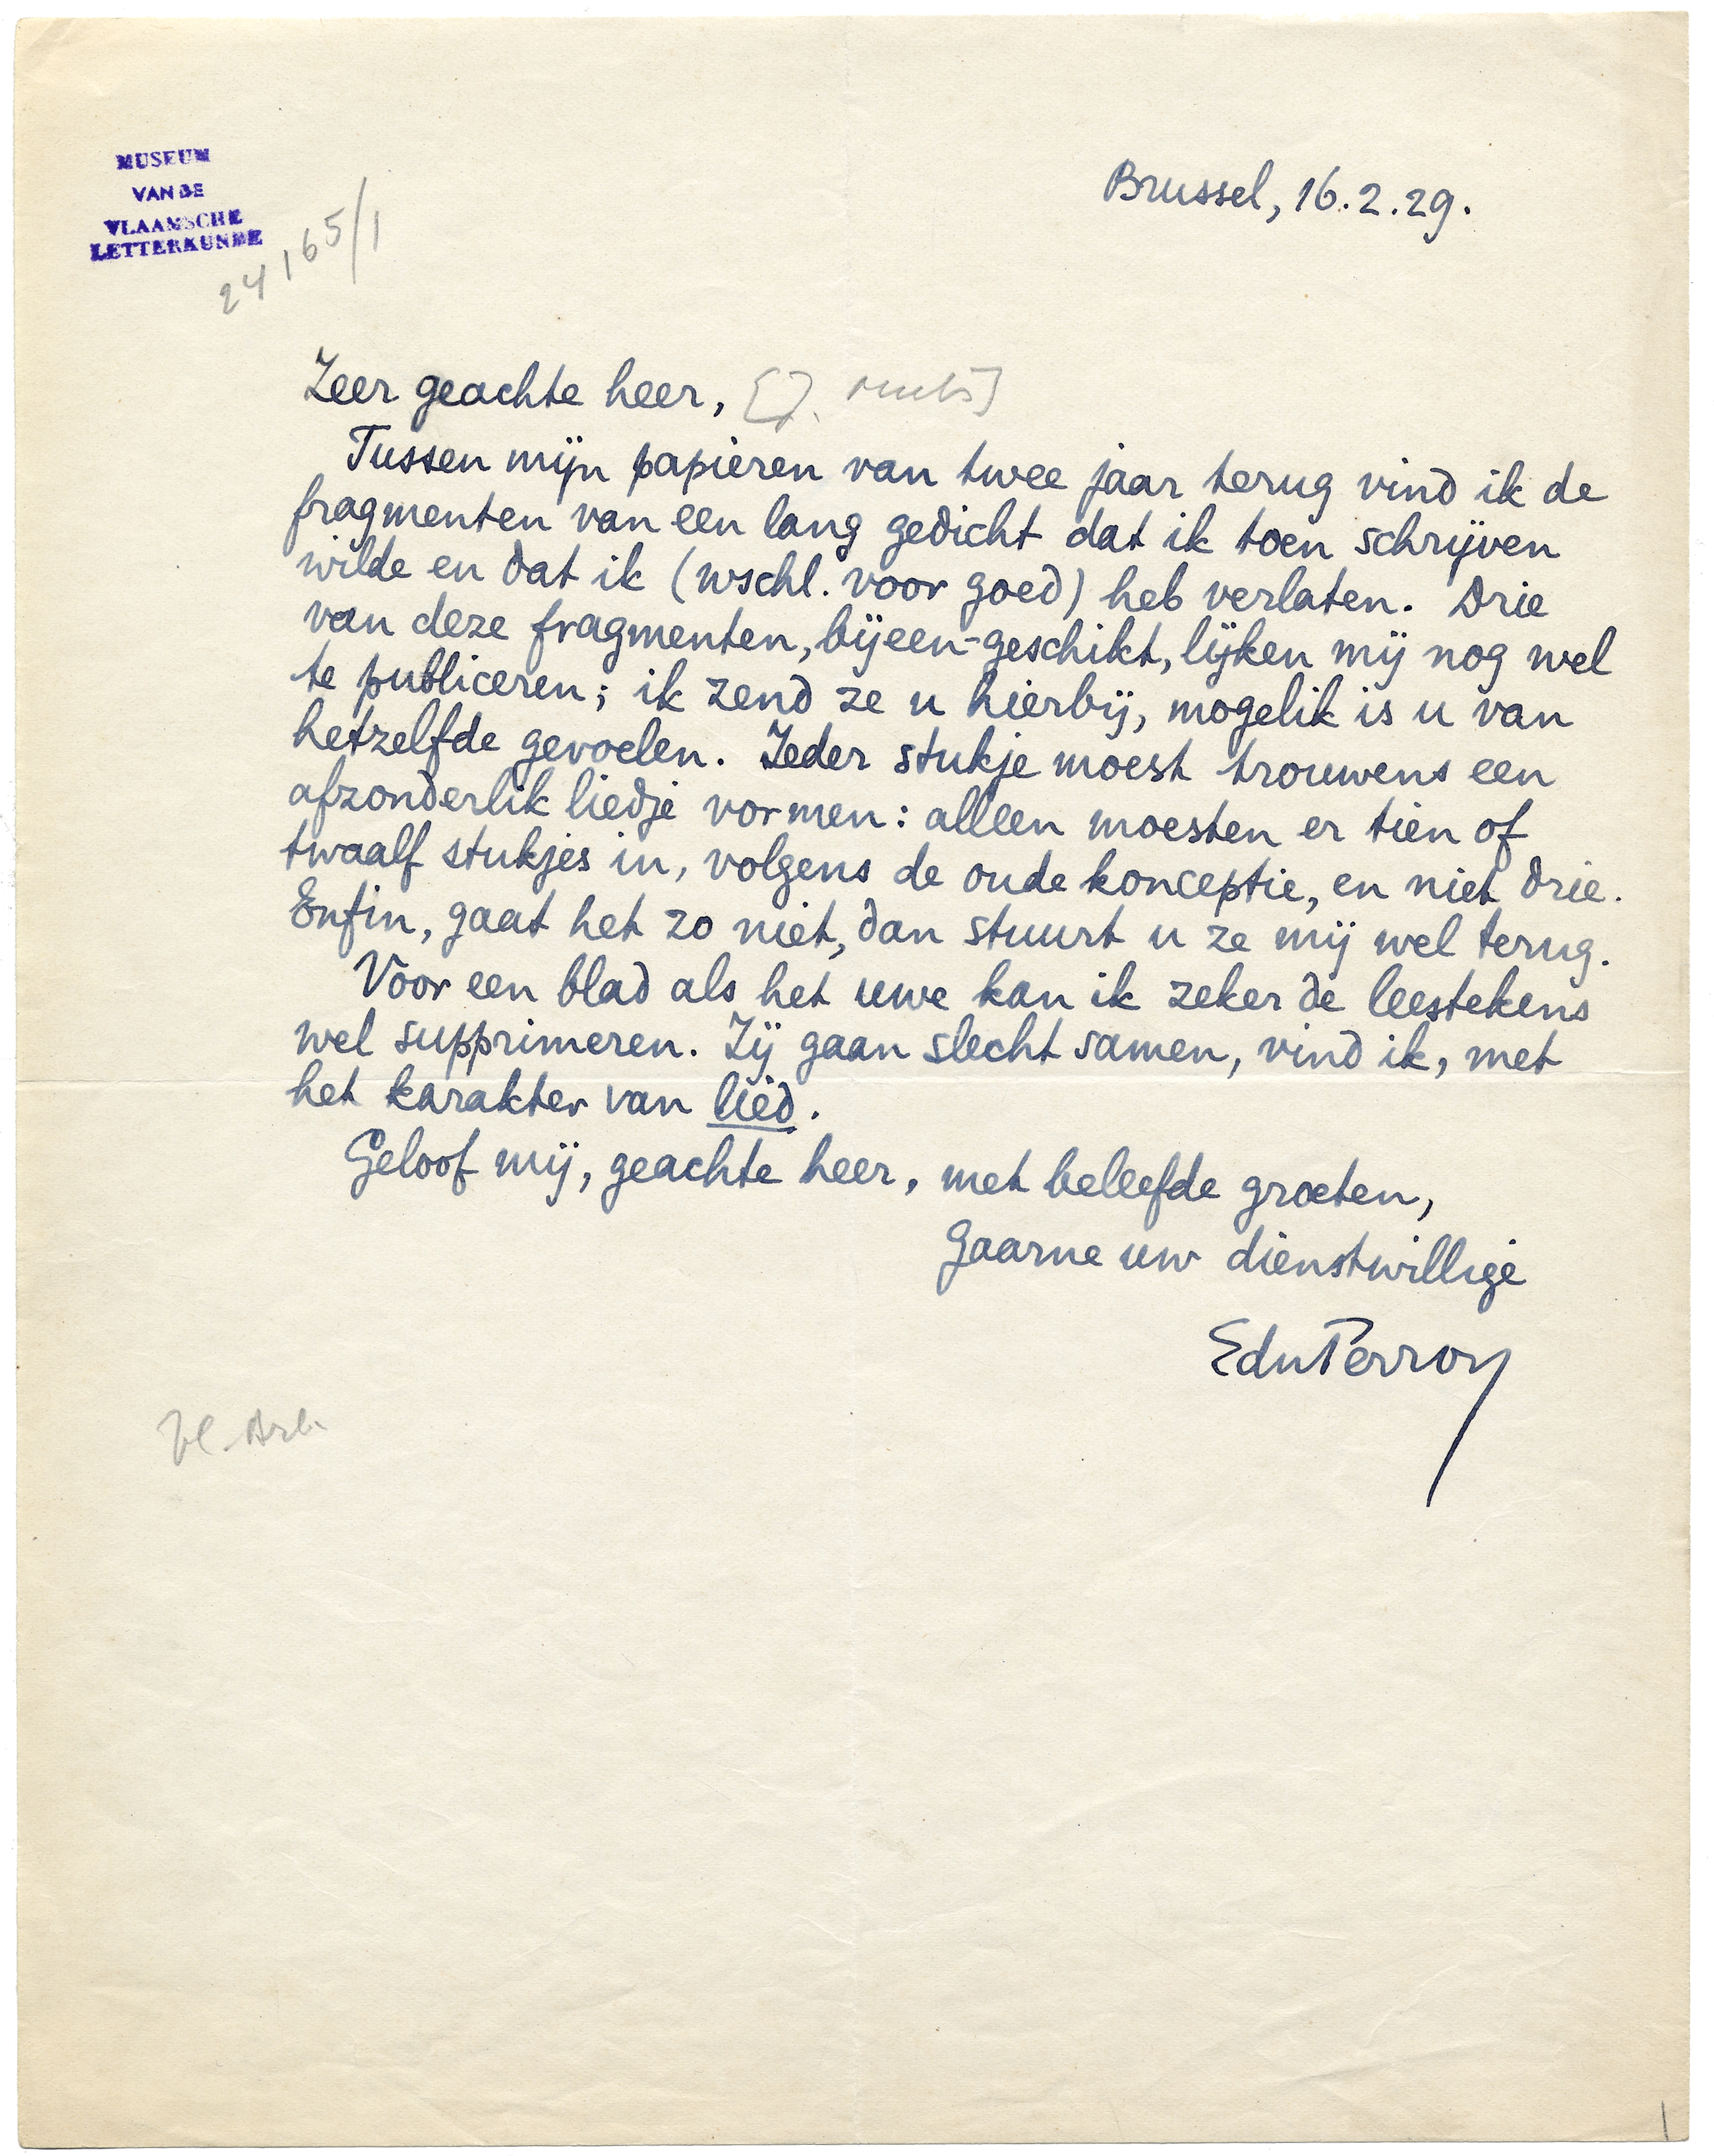 MUSEUM
VAN DE
VLAAMSCHE
LETTERKUNDE
24165/1
Brussel, 16.2.29.
Zeer geachte heer, [J.
Tussen mijn papieren van twee jaar terug vind ik de
fragmenten van een lang gedicht dat ik toen schrijven
wilde en dat ik (wschl. voor goed) heb verlaten. Drie
van deze fragmenten, bijeen-geschikt, lijken mij nog wel
te publiceren; ik zend ze u hierbij, mogelik is u van
hetzelfde gevoelen. Ieder stukje moest trouwens een
afzonderlik liedje vormen: alleen moesten er tien of
twaalf stukjes in, volgens de oude konceptie, en niet drie.
Enfin, gaat het zo niet, dan stuurt u ze mij wel terug.
Voor een blad als het uwe kan ik zeker de leestekens
wel supprimeren. Zij gaan slecht samen, vind ik, met
het karakter van lied.
Geloof mij, geachte heer, met beleefde groeten,
gaarne uw dienstwillige
EduPerron